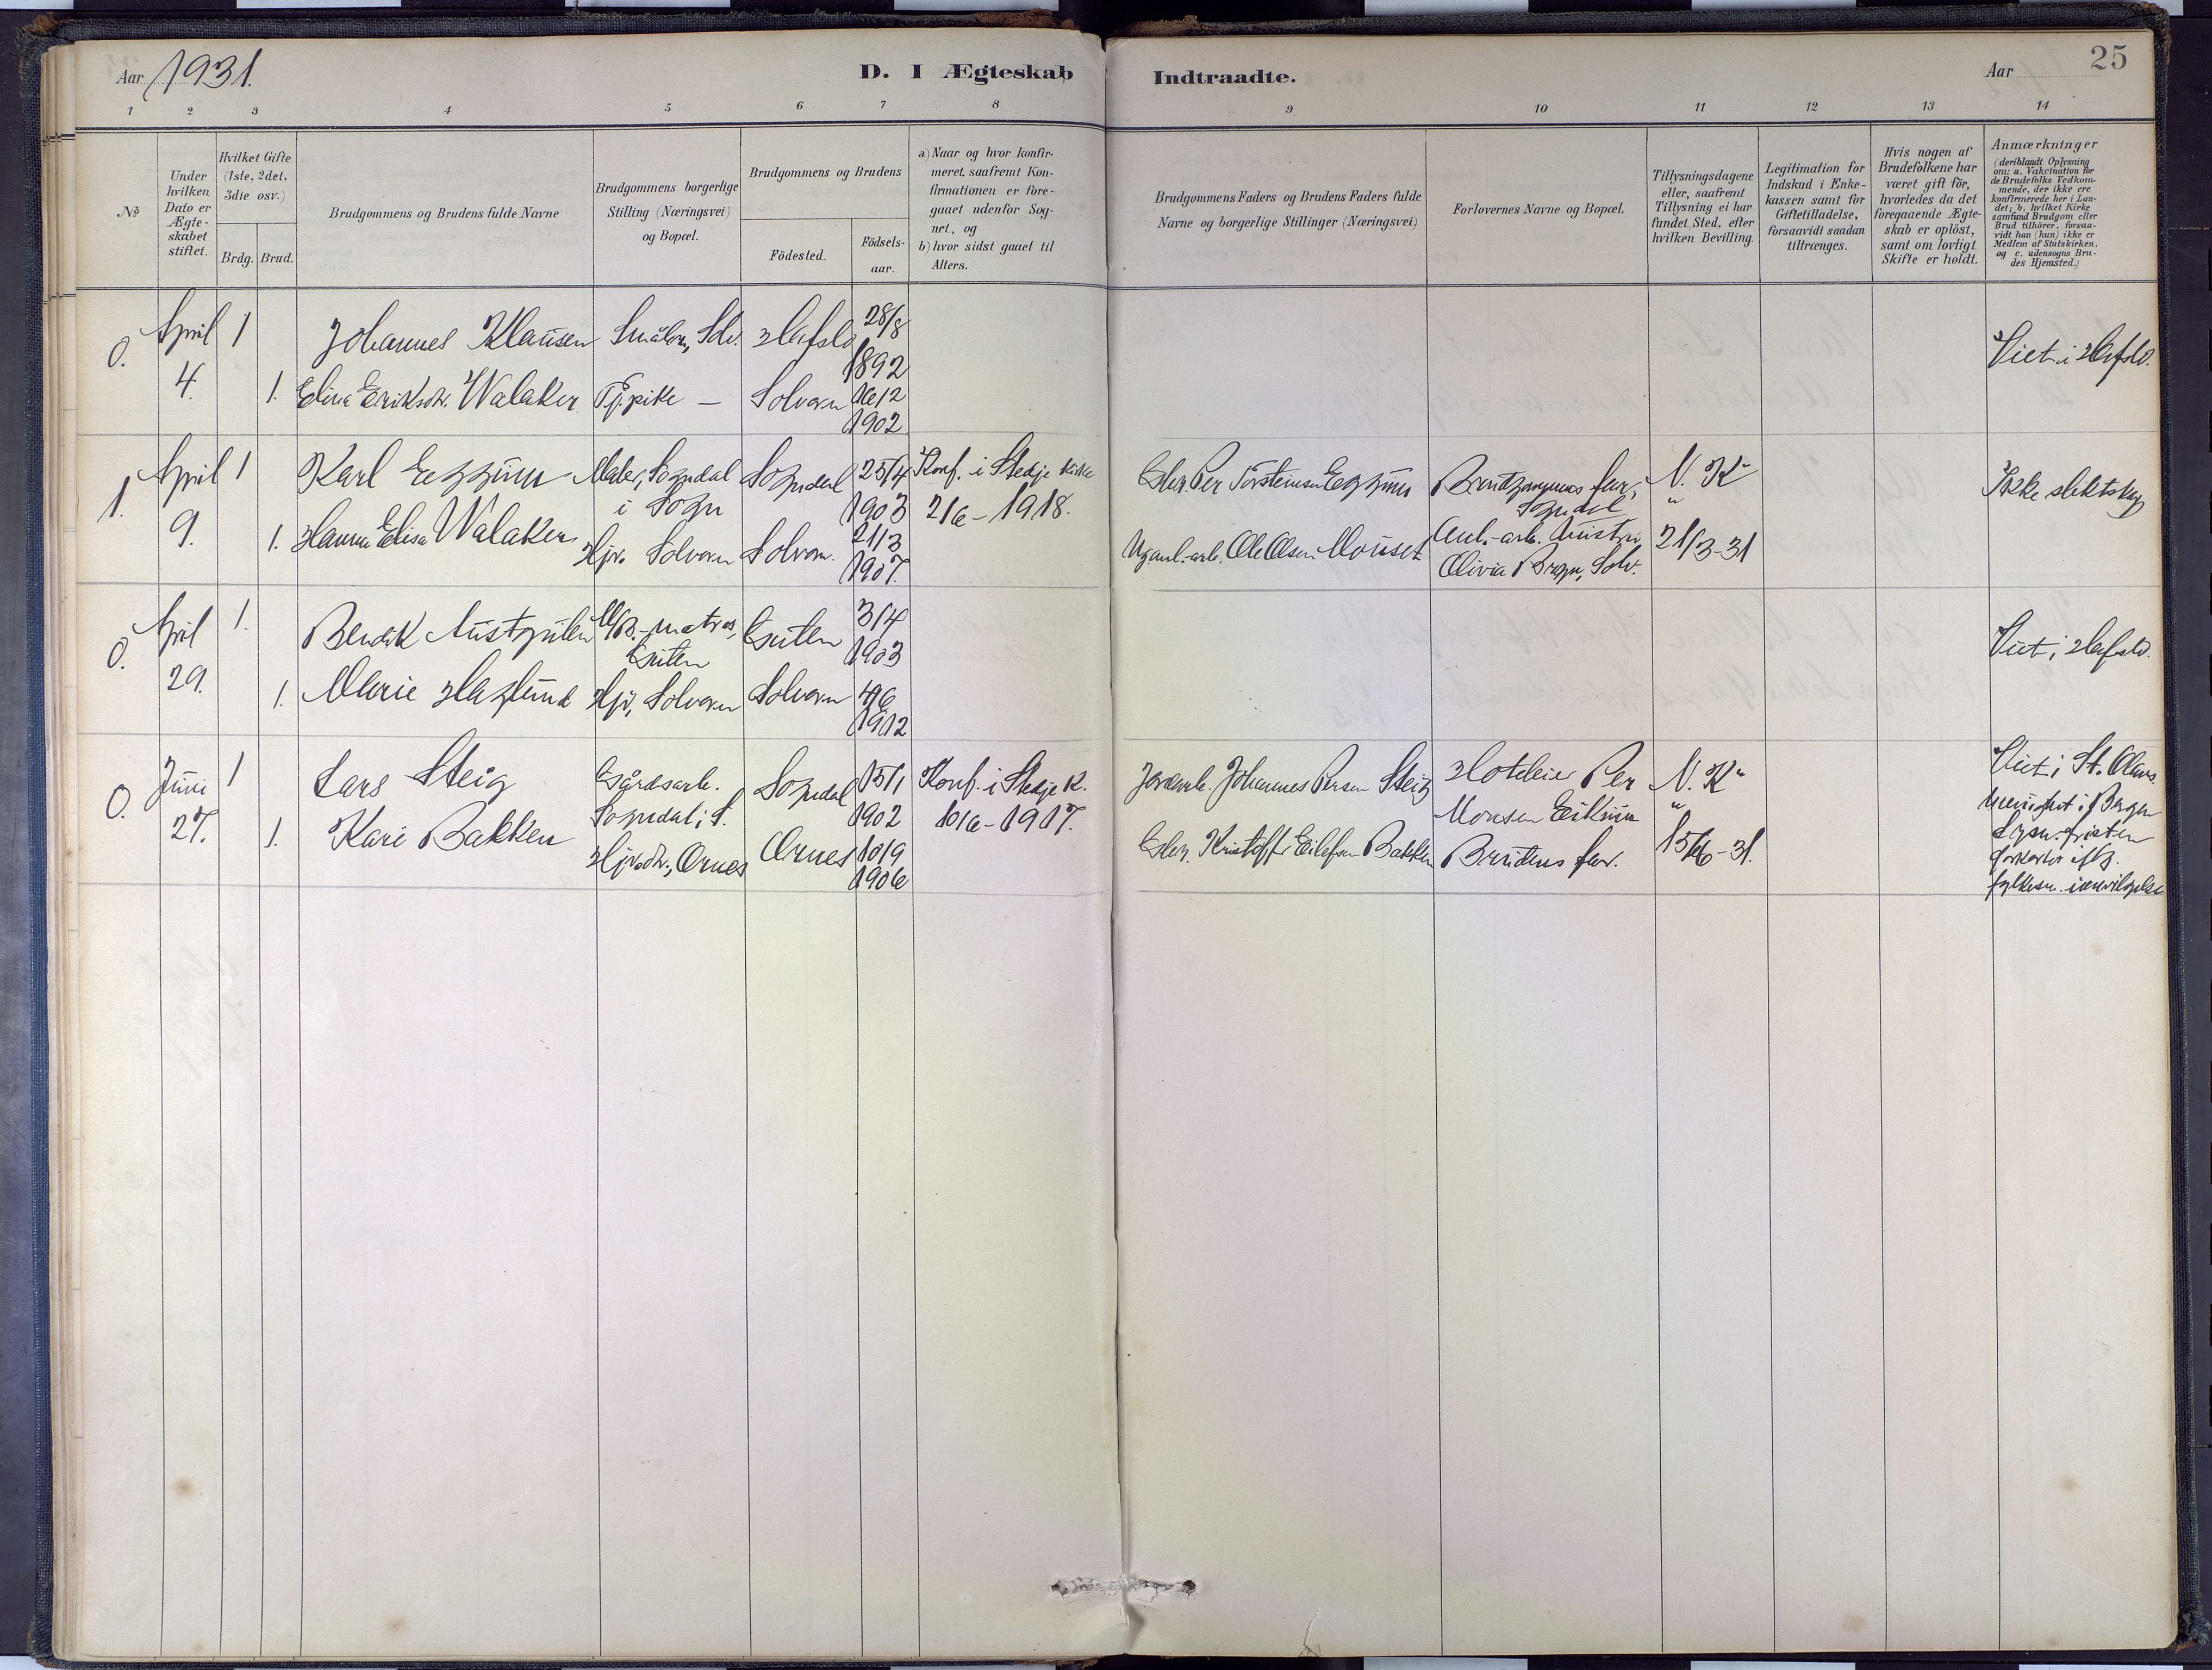 Aar 1931.
D. I Ægteskab Indtraadte.
Aar
25
1 2 3 4 5 6 7 8 9 10 11 12 13 14
No
Under hvilken Dato er Ægte- skabet stiftet.
Hvilket Gifte (1ste, 2det, 3die osv.)
Brdg. Brud.
Brudgommens og Brudens fulde Navne
Brudgommens borgerlige Stilling (Næringsvei) og Bopæl.
Brudgommens og Brudens
Födested.
Födsels- aar.
a) Naar og hvor konfir- meret, saafremt Kon- firmationen er fore- gaaet udenfor Sog- net, og
b) hvor sidst gaaet til Alters.
Brudgommens Faders og Brudens Faders fulde Navne og borgerlige Stillinger (Næringsvei)
Forlovernes Navne og Bopæl.
Tillysningsdagene eller, saafremt Tillysning ei har fundet Sted, efter hvilken Bevilling.
Legitimation for Indskud i Enke- kassen samt for Giftetilladelse, forsaavidt saadan tiltrænges.
Hvis nogen af Brudefolkene har været gift før, hvorledes da det foregaaende Ægte- skab er oplöst, samt om lovligt Skifte er holdt.
Anmærkninger
(deriblandt Oplysning om: a. Vakcination for de Brudefolks Vedkom- mende, der ikke ere konfirmerede her i Lan- det; b. hvilket Kirke samfund Brudgom eller Brud tilhörer, forsaa- vidt han (hun) ikke er Medlem af Statskirken, og c. udensogns Bru- des Hjemsted.)
0. April 4. 1 Johannes Klausen Solv. Hafslo 28/8 1892 Viet i Hafslo.
1. Elina Eriksdtr. Walaker Tj.pike — Solvorn 16/12 1902
1. April 9. 1 Karl Eggum Maler, Sogndal i Sogn Sogndal 25/4 1903 Konf. i Stedje kirke 2/6 - 1918.
Per Torsteinsen Eggum Brudgommens far, Sogndal N. K. Ikke slektskap
1. Hanna Elisa Walaker Hjv. Solvorn Solvorn. 21/3 1907.
Ole Olsen Mouset Anl.-arb. Olivia Bragn, Solv. 21/3-31
0. April 29. 1. Bendik Austgulen -matros, Gulen Gulen 3/4 1903 Viet i Hafslo.
1. Marie Haglund Hjv, Solvorn Solvorn 4/6 1912
0. Juni 27. 1 Lars Steig Gårdsarb. Sogndal i S. Sogndal 15/1 1902 Konf. i Stedje k. 10/6 - 1917.
Johannes Persen Steig Hoteleier Per Monsen Eikum N. K. Viet i St. Olavs menighet i Bergen
1. Kari Bakken Ornes Ornes 10/9 1906
Kristoffer Eilefsen Bakken Brudens far. 15/6-31.
Lysn.-fristen forkortet iflg. fylkesm.